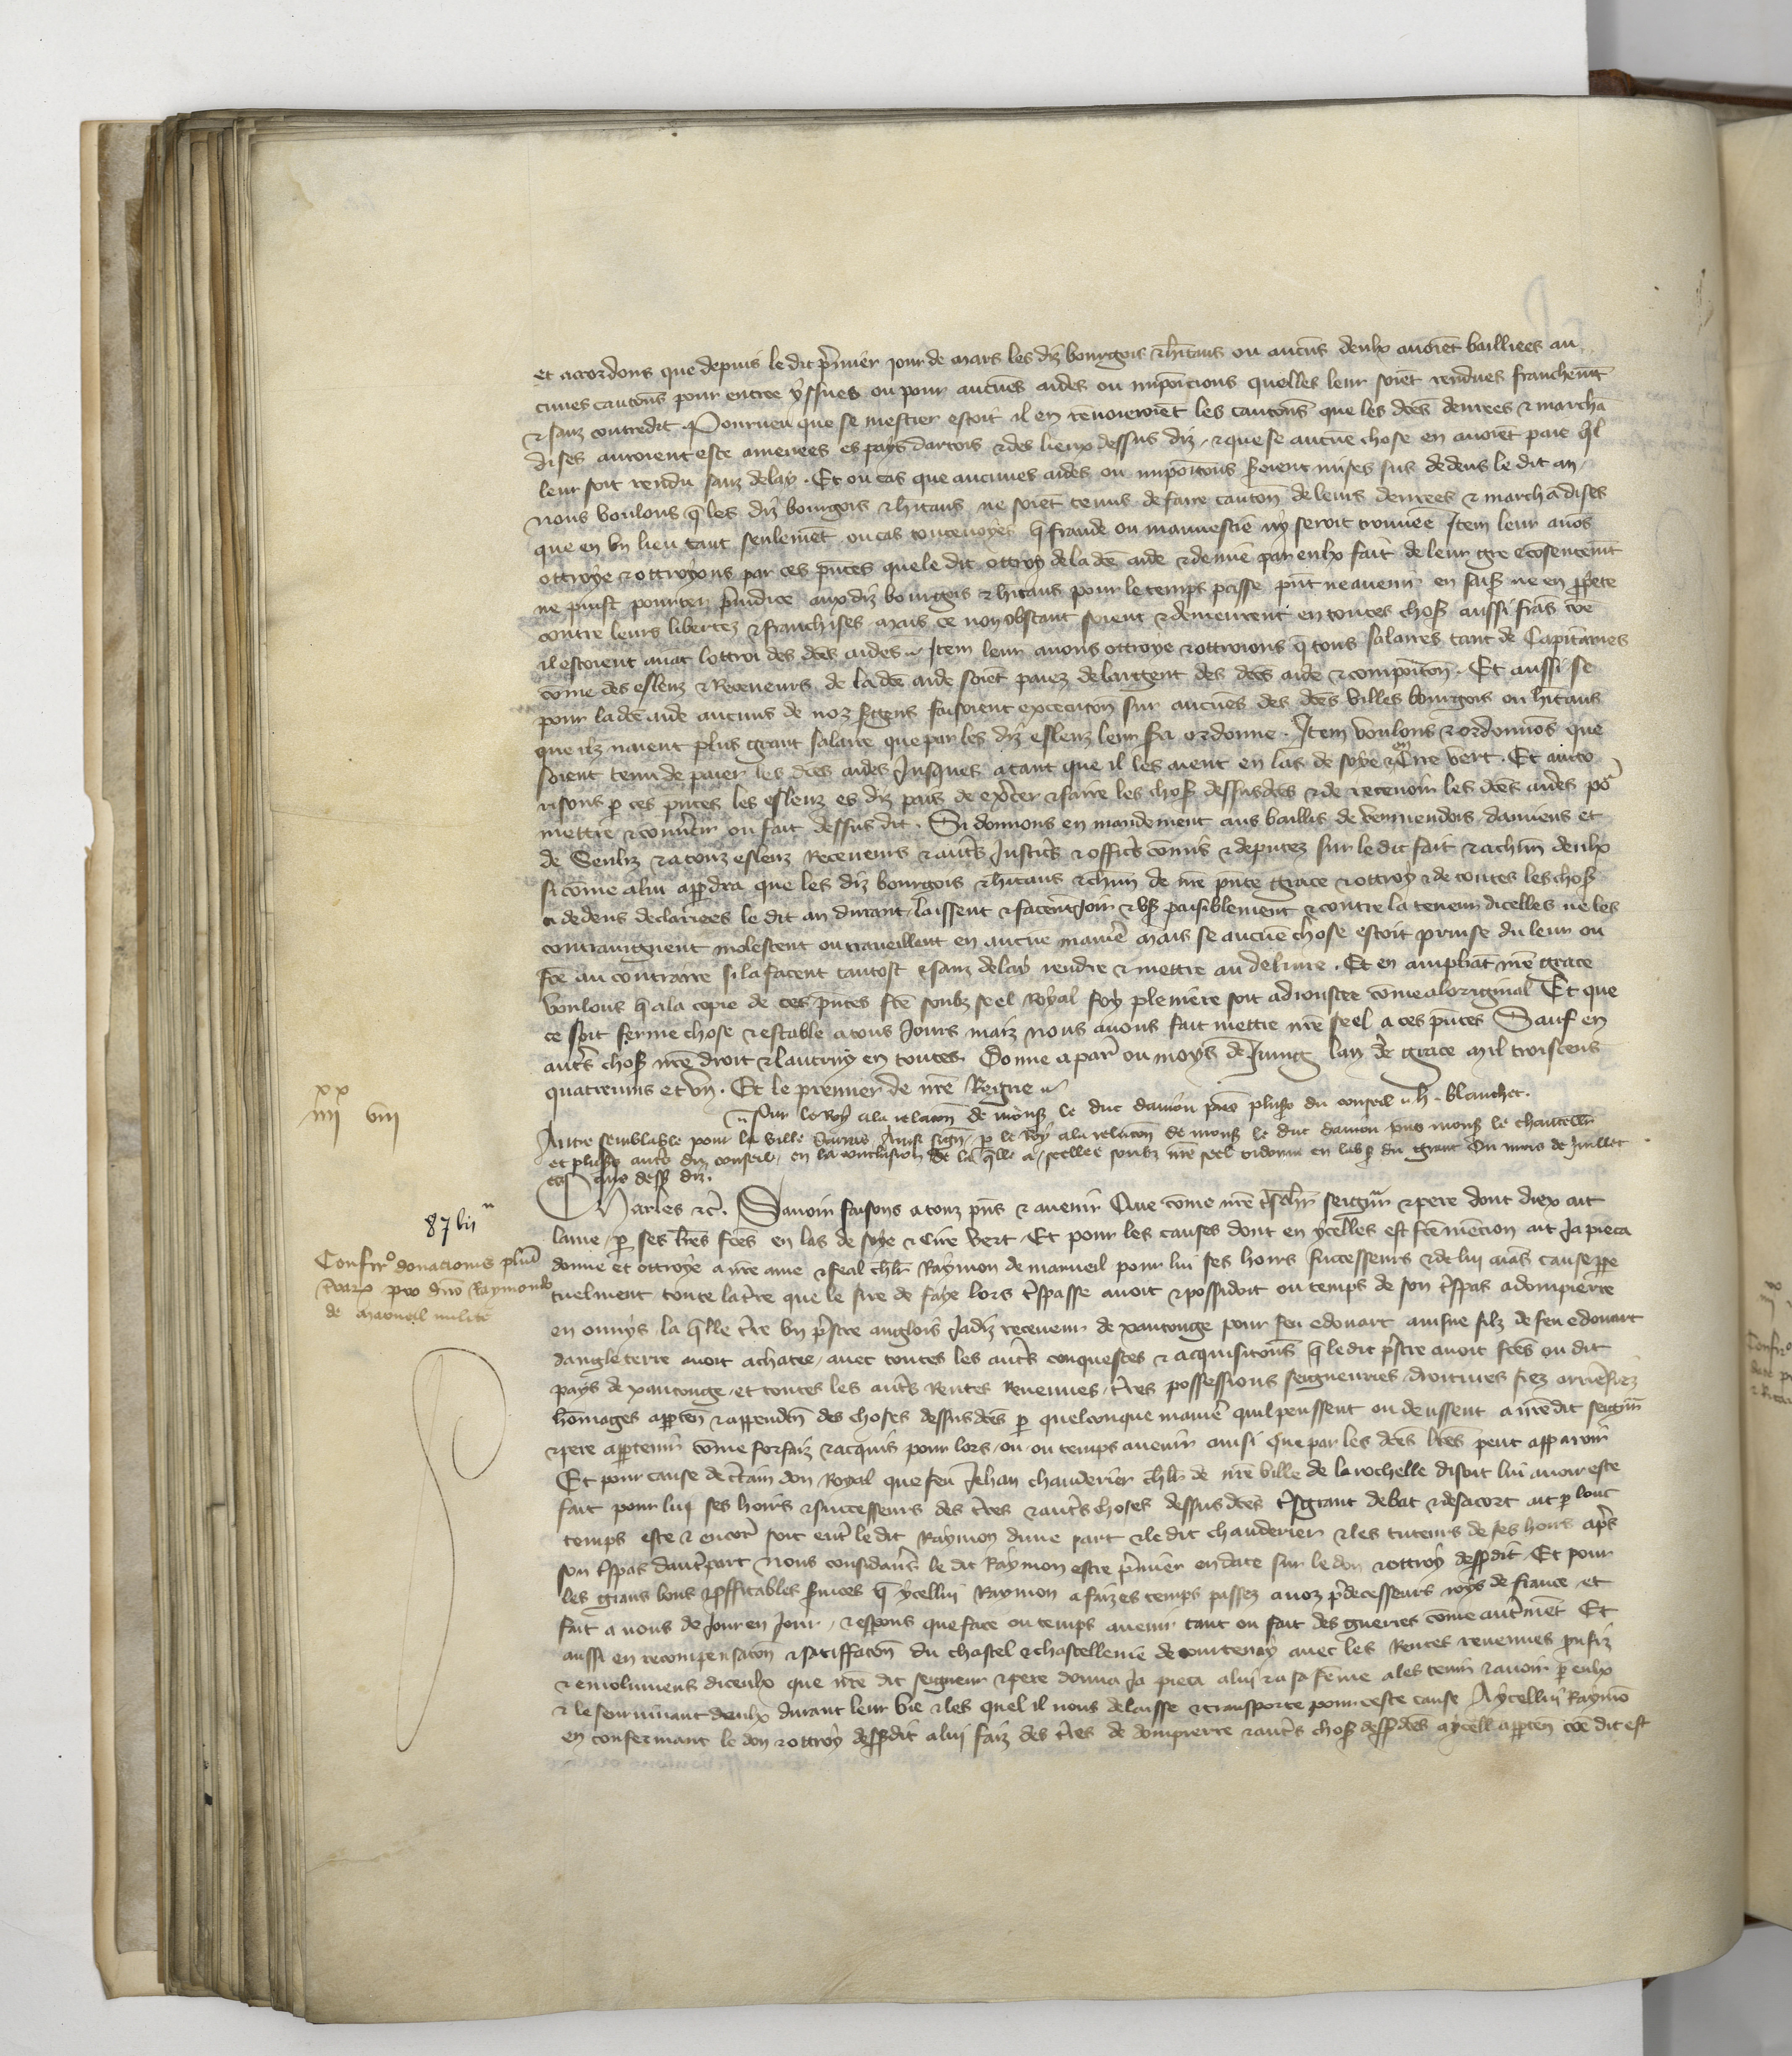 et accordons que depuis le dit p̃mier jour de mars les diz bourgois & hĩtans ou aucũs deulx auoiẽt bailliees au
cunes cautions pour entree yssues ou pour aucũes aides ou impõicions quelles leur soiẽt rendues franchemẽt
& sanz contredit . Pourueu que se mestier estoit il en renoueroiẽt les cautiõs que les dc̃es denrees & marchã
dises auroient este amenees es pays dartois & des lieux dessus diz / & que se aucũe chose en auoiẽt paie q̃l
leur soit rendu sanz delay . Et ou cas que aucunes aides ou impõitions s̃oient mises sus dedens le dit an /
nous voulons q̃ les diz bourgois & hĩtans ne soiẽt tenus de faire cautiõ de leurs denrees & marchãdises
que en vn lieu tant seulemẽt ou cas toutenoyes q̃ fraude ou mauuestie ny seroit trouuee Item leur auõs
ottroye & ottroyons par ces p̃ntes que le dit ottroy de la dc̃e aide & de nuẽ par eulx fait de leur gre & cõsentemẽt
ne puist pourter p̃iudice aux diz bourgois & hĩtans pour le temps passe p̃nt ne auenir en saiz̃ ne en p̃pete
contre leurs libertez & franchises mais ce non obstant soient & demeurent en toutes chos̃ aussi frãs cõe
il estoient auãt lottroi des dc̃es aides // Item leur auons ottroye & ottroions q̃ tous salaires tant de Capitaines
cõme des esleuz & Receueurs de la dc̃e aide soiẽt paiez de largent des dc̃es aide & compõitõn . Et aussi se
pour la dc̃e aide aucuns de noz s̃gens faisoient execucion sur aucũes des dc̃es villes bourgois ou hĩtans
que ilz naient plus grant salaire que par les diz esleuz leur s̃a ordonne . Item voulons & ordonnõs que
soient tenu de paier les dc̃es aides Jusques a tant que il les aient en las de soye & en Cire vert . Et aucto
risons p ces p̃ntes les esleuz es diz pais de exp̃cer & faire les chos̃ dessusdc̃es & de receuoir les dc̃es aides po᷑
mettre & conũtir ou fait dessus dit . Si donnons en mandement aus baillis de vermendois damiens et
de Senliz & a touz esleuz Receueurs & autr̃s Justic̃s & offic̃s cõmis & deputez sur le dit fait & a chũn deulx
si cõme a lui app̃dra que les diz bourgois & hĩtans & chũn de nr̃e p̃nte grace & ottroy & de toutes les chos̃
ci dedens declairees le dit an durant / laissent & facent joir & vs̃ paisiblement & contre la teneur dicelles ne les
contraingnent molestent ou traueillent en aucũe maniẽ mais se aucũe chose estoit prinse du leur ou
fc̃e au contraire si la facent tantost & sanz delay rendre & mettre au deliure . Et en ampliãt nr̃e grace
voulons q̃ a la copie de ces p̃ntes fc̃e soubz seel Royal foy pleniere soit adioustee cõme a loriginal Et que
ce soit ferme chose & estable a tous Jours maiz nous auons fait mettre nr̃e seel a ces p̃ntes Sauf en
autr̃s chos̃ nr̃e droit & lautruy en toutes . Donne a par᷑ ou moys de Juing lan de grace mil troiscens
quatreuins et vn . Et le premier de nr̃e Regne //
// Par le Roy a la relacõn de mons̃ le duc daniou p̃ns plus̃s du conseil // h . blanchet .
Autre semblable pour la ville darras Ainsi sign̄ / p le Roy a la relacõn de mons̃ le duc daniou p̃ns mons̃ le chancell᷑
et plus̃s autr̃s du conseil / en la conclusion de la q̃lle a / scellee soubz nr̃e seel ordonne en labs̃ du grant Ou mois de Juillet
eq̃ que dess̃ diz .
XX
IIII VIII
87 lii ͫ
Confir° donacionis pluĩ
terar᷑ pro dño Raymondo
de maroueil milite
Charles &c̃ . Sauoir faisons a touz p̃ns & auenir Que cõme nr̃e tr̃schr̃ seign᷑ & pere dont diex ait
lame / p ses lr̃es fc̃es en las de soye & Cire vert . Et pour les causes dont en ycelles est fc̃e mencion ait Ja pieca
donne et ottroye a nr̃e ame & feal chlr̃ Raymon de marueil pour lui ses hoirs successeurs & de lui aiãs cause ppe
tuelment toute la tr̃re que le sire de faye lors tr̃spasse auoit & possidoit ou temps de son tr̃spas a dompierre
en onnys la q̃lle tr̃re vn p̃stre anglois Jadiz receueur de xantonge pour feu edouart ainsne filz de feu edouart
dangleterre auoit achatee / auec toutes les autr̃s conquestes & acquisitions q̃ le dit p̃stre auoit fc̃es ou dit
pays de xantonge / et toutes les autr̃s Rentes Reuenues / tr̃res possessions seigneuries / droitures fiez arrierefiez
hõmages appten̄ & appenden̄ des choses dessusdc̃es p quelconque maniẽ quil peussent ou deussent a nr̃e dit seign᷑
& pere aptenir cõme forfaiz & acquis pour lors / ou / ou temps auenir ainsi que par les dc̃es lr̃es peut apparoir
Et pour cause de c̃tain don Royal que feu Jehan chauderier chlr̃ de nr̃e ville de la rochelle disoit lui auoir este
fait pour lui ses hoirs & successeurs des tr̃res & autr̃s choses dessusdc̃es tr̃sgrant debat & desacort ait p lonc
temps este & encor᷑ soit entr̃ le dit Raymon dune part & le dit chauderier & les tuteurs de ses hoirs apr̃s
son tr̃spas dautr̃ part Nous considañs le dit Raymon estre p̃mier en date sur le don & ottroy dess̃dit Et pour
les grans bons & p̃ffitables s̃uices q̃ ycellui Raymon a faiz es temps passez a noz p̃decesseurs roys de france et
fait a nous de Jour en Jour / & esperons que face ou temps auenir tant ou fait des guerres cõme autr̃mẽt Et
aussi en recompensacõn & satiffacõn du chastel & chastellenie de courtenay auec les Rentes reuenues proufiz
& emolumens diceulx que nr̃e dit seigneur & pere donna Ja pieca a lui & a sa fẽme a les tenir & auoir p eulx
& le seuruiuant deulx durant leur vie & les quel il nous delaisse & transporte pour ceste cause A ycellui Raymõ
en confermant le don & ottroy dess̃dit a lui faiz des tr̃res de dompierre & autr̃s chos̃ dess̃dc̃es a ycell appten̄ cõe dit est